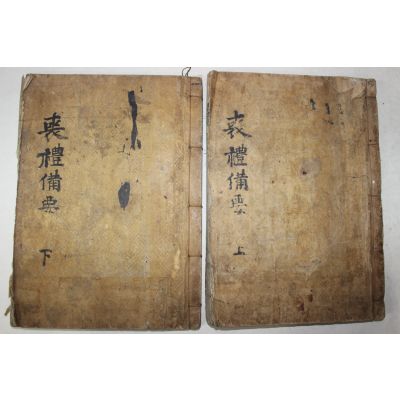 喪禮備要
上
喪禮備要
下